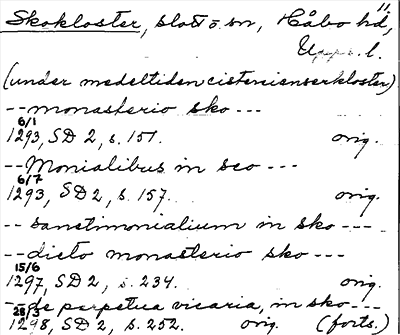 11.
Skokloster, slott o. sn, Håbo hd,
Upps. l.
(under medeltiden cistercienserkloster)
-- monasterio sko ---
6/1
1293, SD 2, s. 151. orig.
-- Monialibus in sco ---
6/7
1293, SD 2, s. 157. orig.
-- sanctimonialium in sko ---
-- dicto monasterio sko ---
15/6
1297, SD 2, s. 234. orig.
-- de perpetua vicaria, in sko ---
28/3
1298, SD 2, s. 252. orig. (forts.)